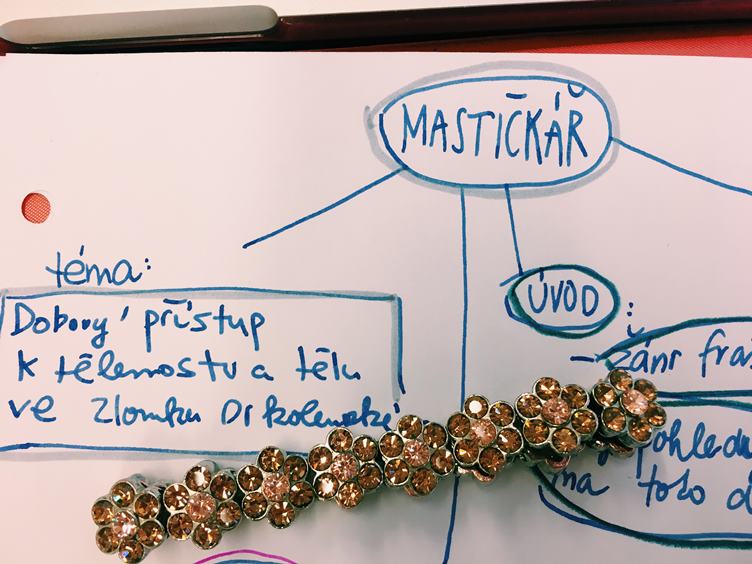 MASTIČKÁŘ
téma:
Dobový přístup
k tělesnostu a tělu
ve zlomku Drkolenské
ÚVOD:
- žánr
pohledu
na toto